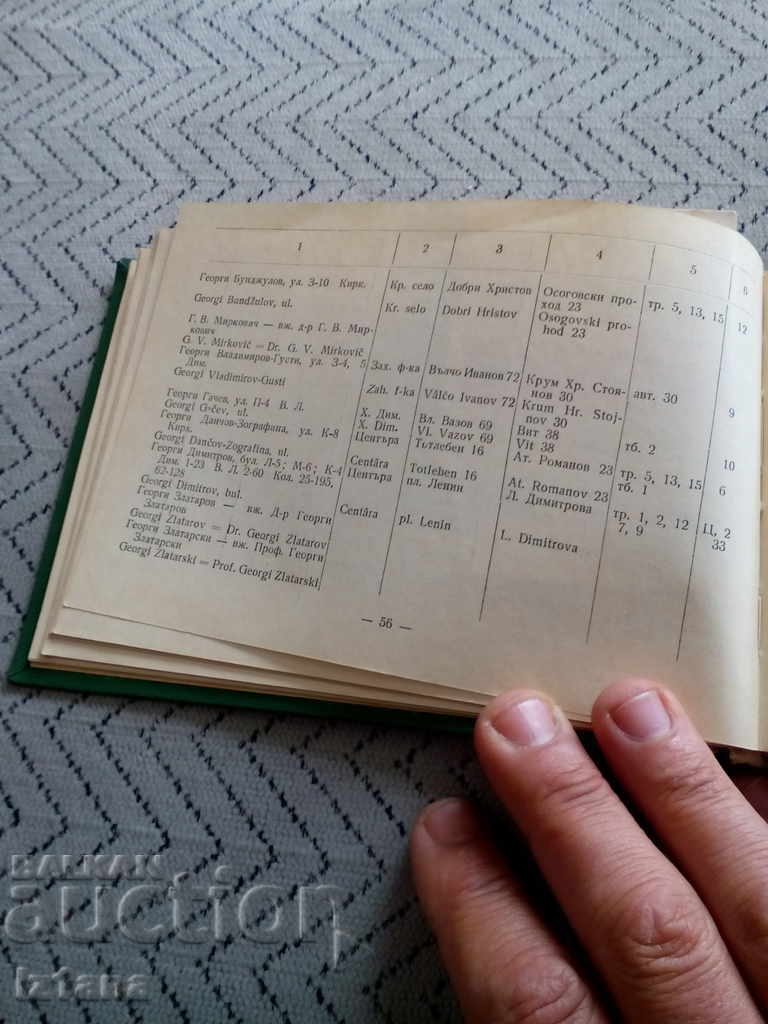 1 2 3 4 5 6
Георги Бунджулов, ул. З-10 Кирк. Кр. село Добри Христов Осоговски про- тр. 5, 13, 15 12
ход 23
Georgi Bandžulov, ul. Kr. selo Dobri Hristov Osogovski pro-
hod 23
Г. В. Миркович — вж. д-р Г. В. Мир-
кович
G. V. Mirkovič = Dr. G. V. Mirkovič
Георги Владимиров-Густи, ул. З-4, 5 Зах. ф-ка Вълчо Иванов 72 Крум Хр. Стоя- авт. 30 9
Дим. нов 30
Georgi Vladimirov-Gusti Zah. f-ka Vălčo Ivanov 72 Krum Hr. Stoj-
nov 30
Георги Гачев, ул. П-4 В. Л. Х. Дим. Вл. Вазов 69 Вит 38 тб. 2 10
Georgi G čev, ul. X. Dim. Vl. Vazov 69 Vit 38
Георги Данчов-Зографина, ул. К-8 Центъра Тотлебен 16 Ат. Романов 23 тр. 5, 13, 15 6
Кирк. тб. 1
Georgi Dančov-Zografina, ul. Centăra Totleben 16 At. Romanov 23
Георги Димитров, бул. Л-5; М-6; К-4 Центъра пл. Ленин Л. Димитрова тр. 1, 2, 12 Ц, 2
Дим. 1-23 В. Л. 2-60 Кол. 25-195, 7, 9 33
62-128
Georgi Dimitrov, bul. Centăra pl. Lenin L. Dimitrova
Георги Златаров — вж. Д-р Георги
Златаров
Georgi Zlatarov = Dr. Georgi Zlatarov
Георги Златарски — вж. Проф. Георги
Златарски
Georgi Zlatarski = Prof. Georgi Zlatarski
— 56 —
БАЛКАН
auction
Iztana